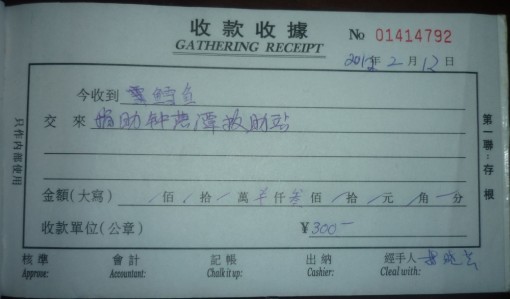 收款收據
GATHERING RECEIPT
No 01414792
年 2 月 12 日
今收到
交 來 捐助钟 潭救助站
金額(大寫) 佰 拾 萬 仟 叁 佰 拾 元 角 分
收款單位(公章) ¥300-
核準 會計 記帳 出納 經手人
Approve: Accountant: Chalk it up: Cashier: Cleal with:
只作內部使用
第一聯:存根